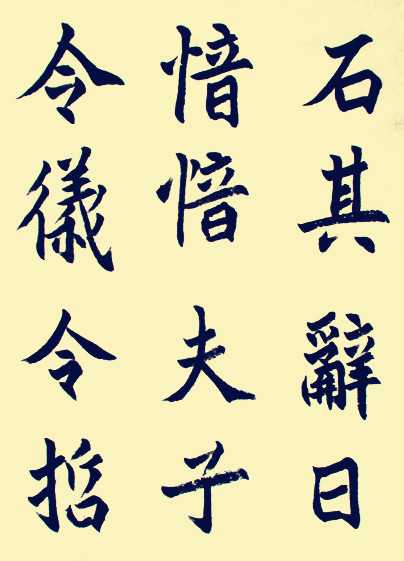 石其辭曰
愔愔夫子
令儀令哲